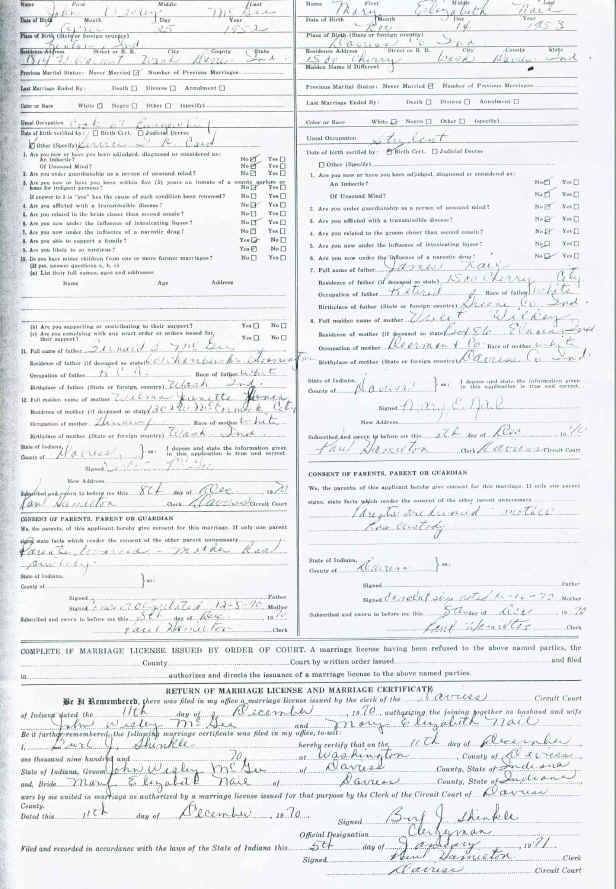 Name First Middle Last
John Wesley McGee
Date of Birth Month Day Year
25 1952
Place of Birth (State or foreign country)
Ind
Residence Address Street or R. R. City County State
Wash Ind
Previous Marital Status: Never Married ☑ Number of Previous Marriages
Last Marriage Ended By: Death ☐ Divorce ☐ Annulment ☐
Color or Race White ☑ Negro ☐ Other ☐ (specify)
Usual Occupation Cook
Date of birth verified by: ☐ Birth Cert. ☐ Judicial Decree
☑ Other (Specify) Card
1. Are you now or have you been adjudged, diagnosed or considered as:
An Imbecile? No ☑ Yes ☐
Of Unsound Mind? No ☑ Yes ☐
2. Are you under guardianship as a person of unsound mind? No ☑ Yes ☐
3. Are you now or have you been within five (5) years an inmate of a county asylum or home for indigent persons? No ☑ Yes ☐
If answer to 3 is "yes" has the cause of such condition been removed? No ☐ Yes ☐
4. Are you afflicted with a transmissible disease? No ☑ Yes ☐
5. Are you related to the bride closer than second cousin? No ☑ Yes ☐
6. Are you now under the influence of intoxicating liquor? No ☑ Yes ☐
7. Are you now under the influence of a narcotic drug? No ☑ Yes ☐
8. Are you able to support a family? Yes ☑ No ☐
9. Are you likely to so continue? Yes ☑ No ☐
10. Do you have minor children from one or more former marriages? No ☐ Yes ☐
(If yes, answer questions a, b, c)
(a) List their full names, ages and addresses
Name Age Address
(b) Are you supporting or contributing to their support? Yes ☐ No ☐
(c) Are you complying with any court order or orders issued for their support? Yes ☐ No ☐
11. Full name of father McGee
Residence of father (if deceased so state)
Occupation of father Race of father white
Birthplace of father (State or foreign country) Wash Ind
12. Full maiden name of mother Wilma Jeanette Jones
Residence of mother (if deceased so state) McCormick City
Occupation of mother Race of mother White
Birthplace of mother (State or foreign country) Wash Ind
State of Indiana,
County of Daviess } ss:
I depose and state the information given in this application is true and correct.
Signed
New Address
Subscribed and sworn to before me this 8th day of Dec 1970
Paul Hamilton Clerk Daviess Circuit Court
CONSENT OF PARENTS, PARENT OR GUARDIAN
We, the parents of this applicant hereby give consent for this marriage. If only one parent
signs state facts which render the consent of the other parent unnecessary
Parents divorced - Mother had
custody
State of Indiana,
County of } ss:
Signed Father
Signed 12-8-70 Mother
Subscribed and sworn to before me this 8th day of Dec. 1970
Paul Hamilton Clerk
Name First Middle Last
Mary Elizabeth Nail
Date of Birth Month Day Year
Dec 14 1953
Place of Birth (State or foreign country)
Daviess Co Ind
Residence Address Street or R. R. City County State
1500 Cherry Wash Daviess Ind
Maiden Name if Different
Previous Marital Status: Never Married ☑ Number of Previous Marriages
Last Marriage Ended By: Death ☐ Divorce ☐ Annulment ☐
Color or Race White ☑ Negro ☐ Other ☐ (specify)
Usual Occupation Student
Date of birth verified by: ☑ Birth Cert. ☐ Judicial Decree
☐ Other (Specify)
1. Are you now or have you been adjudged, diagnosed or considered as:
An Imbecile? No ☑ Yes ☐
Of Unsound Mind? No ☑ Yes ☐
2. Are you under guardianship as a person of unsound mind? No ☑ Yes ☐
3. Are you afflicted with a transmissible disease? No ☑ Yes ☐
4. Are you related to the groom closer than second cousin? No ☑ Yes ☐
5. Are you now under the influence of intoxicating liquor? No ☑ Yes ☐
6. Are you now under the influence of a narcotic drug? No ☑ Yes ☐
7. Full name of father James Nail
Residence of father (if deceased so state) 1500 Cherry City
Occupation of father Retired Race of father White
Birthplace of father (State or foreign country) Greene Co Ind.
8. Full maiden name of mother Violet Wilkey
Residence of mother (if deceased so state) Box 86 Elnora Ind
Occupation of mother Race of mother white
Birthplace of mother (State or foreign country) Daviess Co Ind.
State of Indiana,
County of Daviess } ss:
I depose and state the information given in this application is true and correct.
Signed Mary E. Nail
New Address
Subscribed and sworn to before me this 8th day of Dec 1970
Paul Hamilton Clerk Daviess Circuit Court
CONSENT OF PARENTS, PARENT OR GUARDIAN
We, the parents of this applicant hereby give consent for this marriage. If only one parent
signs, state facts which render the consent of the other parent unnecessary
Parents are divorced - mother
has custody
State of Indiana,
County of Daviess } ss:
Signed Father
Signed Mother
Subscribed and sworn to before me this day of Dec 1970
Paul Hamilton Clerk
COMPLETE IF MARRIAGE LICENSE ISSUED BY ORDER OF COURT. A marriage license having been refused to the above named parties, the
County Court by written order issued and filed
in authorizes and directs the issuance of a marriage license to the above named parties.
RETURN OF MARRIAGE LICENSE AND MARRIAGE CERTIFICATE
Be It Remembered, there was filed in my office a marriage license issued by the clerk of the Daviess Circuit Court
of Indiana dated the 11th day of December 1970, authorizing the joining together as husband and wife
John Wesley McGee and Mary Elizabeth Nail
Be it further remembered, the following marriage certificate was filed in my office, to-wit:
I, Burl J. Shinkle hereby certify that on the 11th day of December
one thousand nine hundred and 70 at Washington, County of Daviess,
State of Indiana, Groom John Wesley McGee of Daviess County, State of Indiana
and, Bride Mary Elizabeth Nail of Daviess County, State of Indiana,
were by me united in marriage as authorized by a marriage license issued for that purpose by the Clerk of the Circuit Court of Daviess
County.
Dated this 11th day of December, 1970
Signed Burl J. Shinkle
Official Designation Clergyman
Filed and recorded in accordance with the laws of the State of Indiana this 5th day of January, 1971
Signed Paul Hamilton Clerk
Daviess Circuit Court